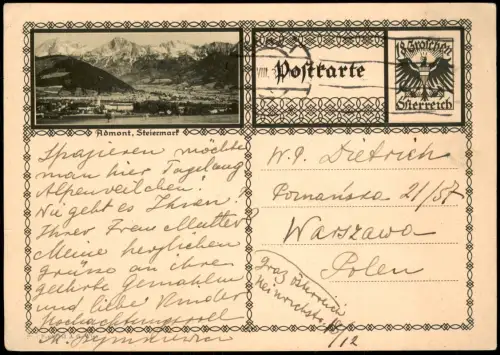 Admont, Steiermark
VIII
Postkarte
18 Groschen
Österreich
Spazieren möchte
man hier Tagelang
Alpenveilchen!
Wie geht es Ihnen?
Ihrer Frau Mutter?
Meine herzlichen
grüße an ihre
geehrte Gemahlin
und liebe Kinder
Hochachtungsvoll
W.P. Dietrich
Poznańska 21/57
Warszawa
Polen
Graz Österreich
Heinrichstr